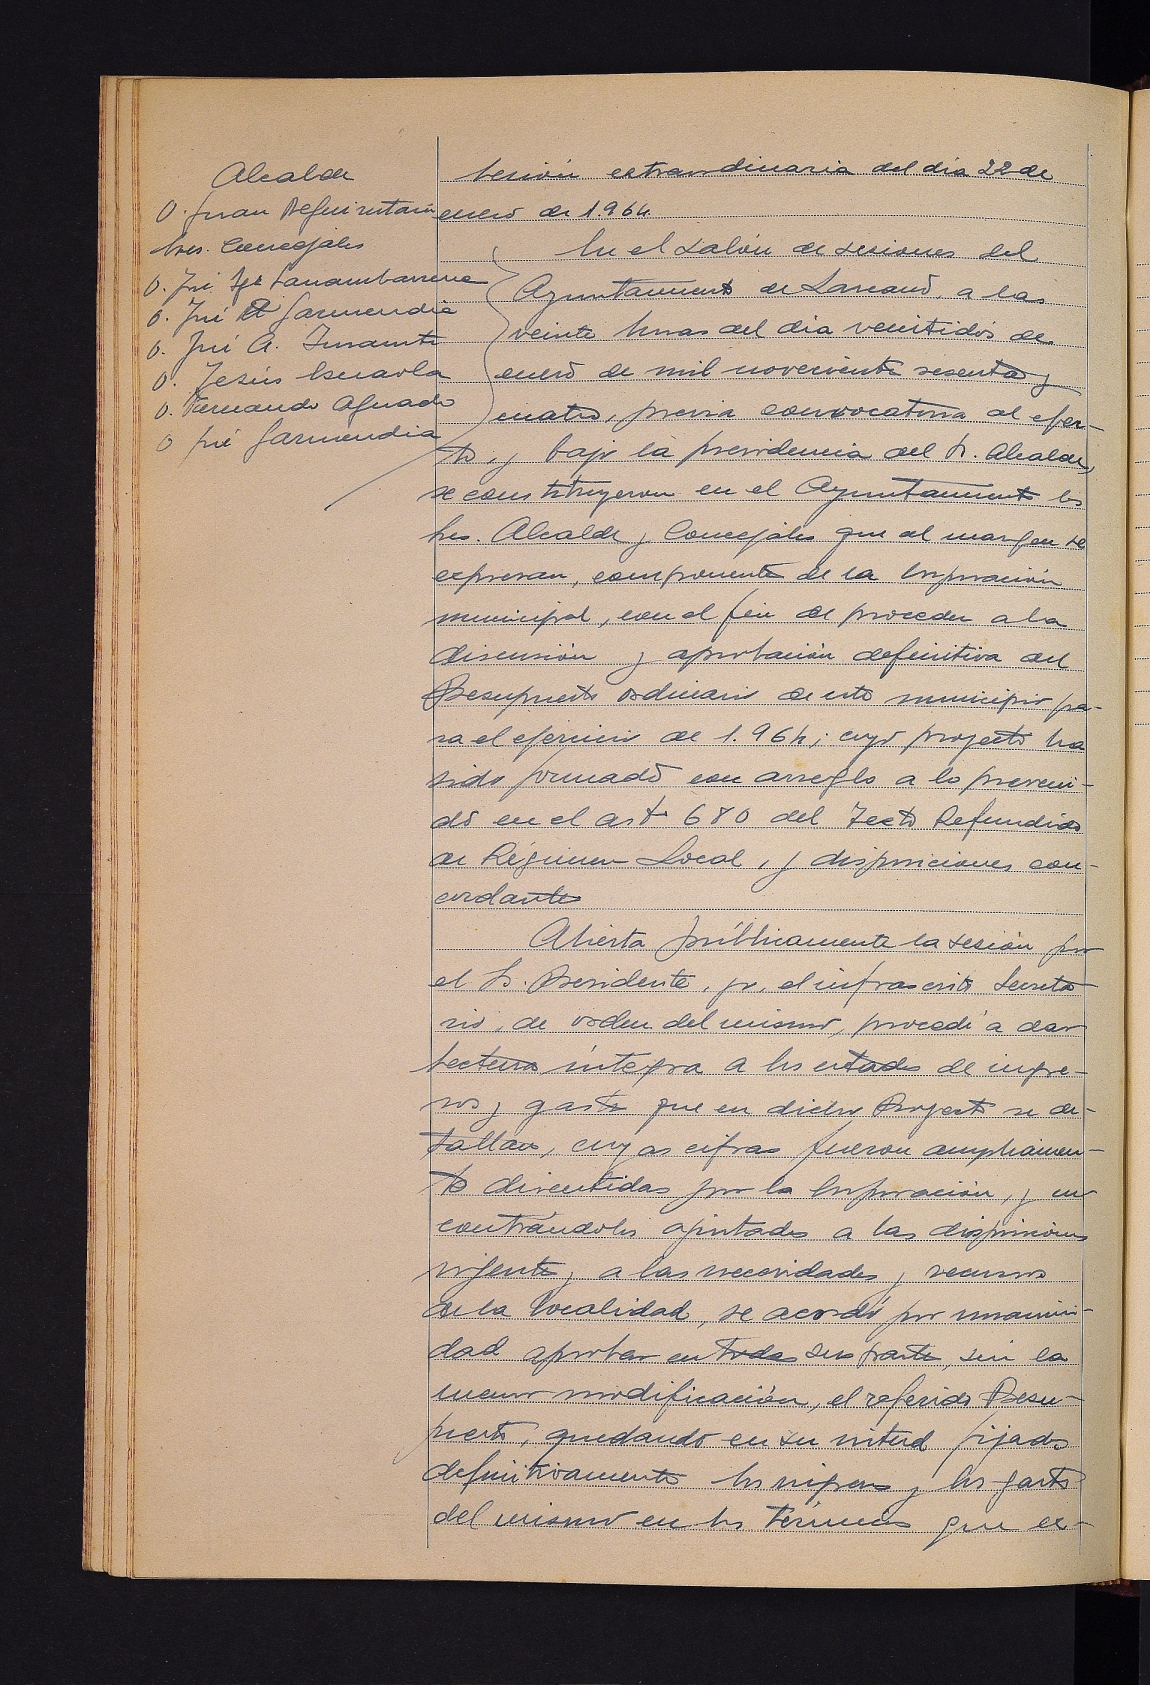 Alcalde
D. Juan Beguiristain
Sres. Concejales
D. José Mª Lanambarrena
D. José Garmendia
D. José A. Insausti
D. Jesús
D. Fernando Aguado
D. José Garmendia
Sesión extraordinaria del día 22 de
enero de 1.964
En el salón de sesiones del
Ayuntamiento de Lazcano, a las
veinte horas del dia veintidós de
enero de mil novecientos sesenta y
cuatro, previa convocatoria al efec-
to, y bajo la presidencia del Sr. Alcalde,
se constituyeron en el Ayuntamiento los
Sres. Alcalde y Concejales que al margen se
expresan, componentes de la Corporación
municipal, con el fin de proceder a la
discusión y aprobación definitiva del
Presupuesto ordinario de este municipio pa-
ra el ejercicio de 1.964; cuyo proyecto ha
sido formado con arreglo a lo preveni-
do en el artº 680 del Texto Refundido
de Régimen Local, y disposiciones con-
cordantes
Abierta públicamente la sesión por
el Sr. Presidente, yo, el infrascrito Secreta
rio, de orden del mismo, procedí a dar
lectura íntegra a los estados de ingre-
sos y gastos que en dicho Proyecto se de-
tallan, cuyas cifras fueron ampliamen-
te discutidas por la Corporación, y en
contrándolos ajustados a las disposiciones
vigentes, a las necesidades y recursos
de la localidad, se acordó por unanimi-
dad aprobar en todas sus partes, sin la
menor modificación, el referido Presu-
puesto, quedando en su virtud fijados
definitivamente los ingresos y los gastos
del mismo en los términos que ex-